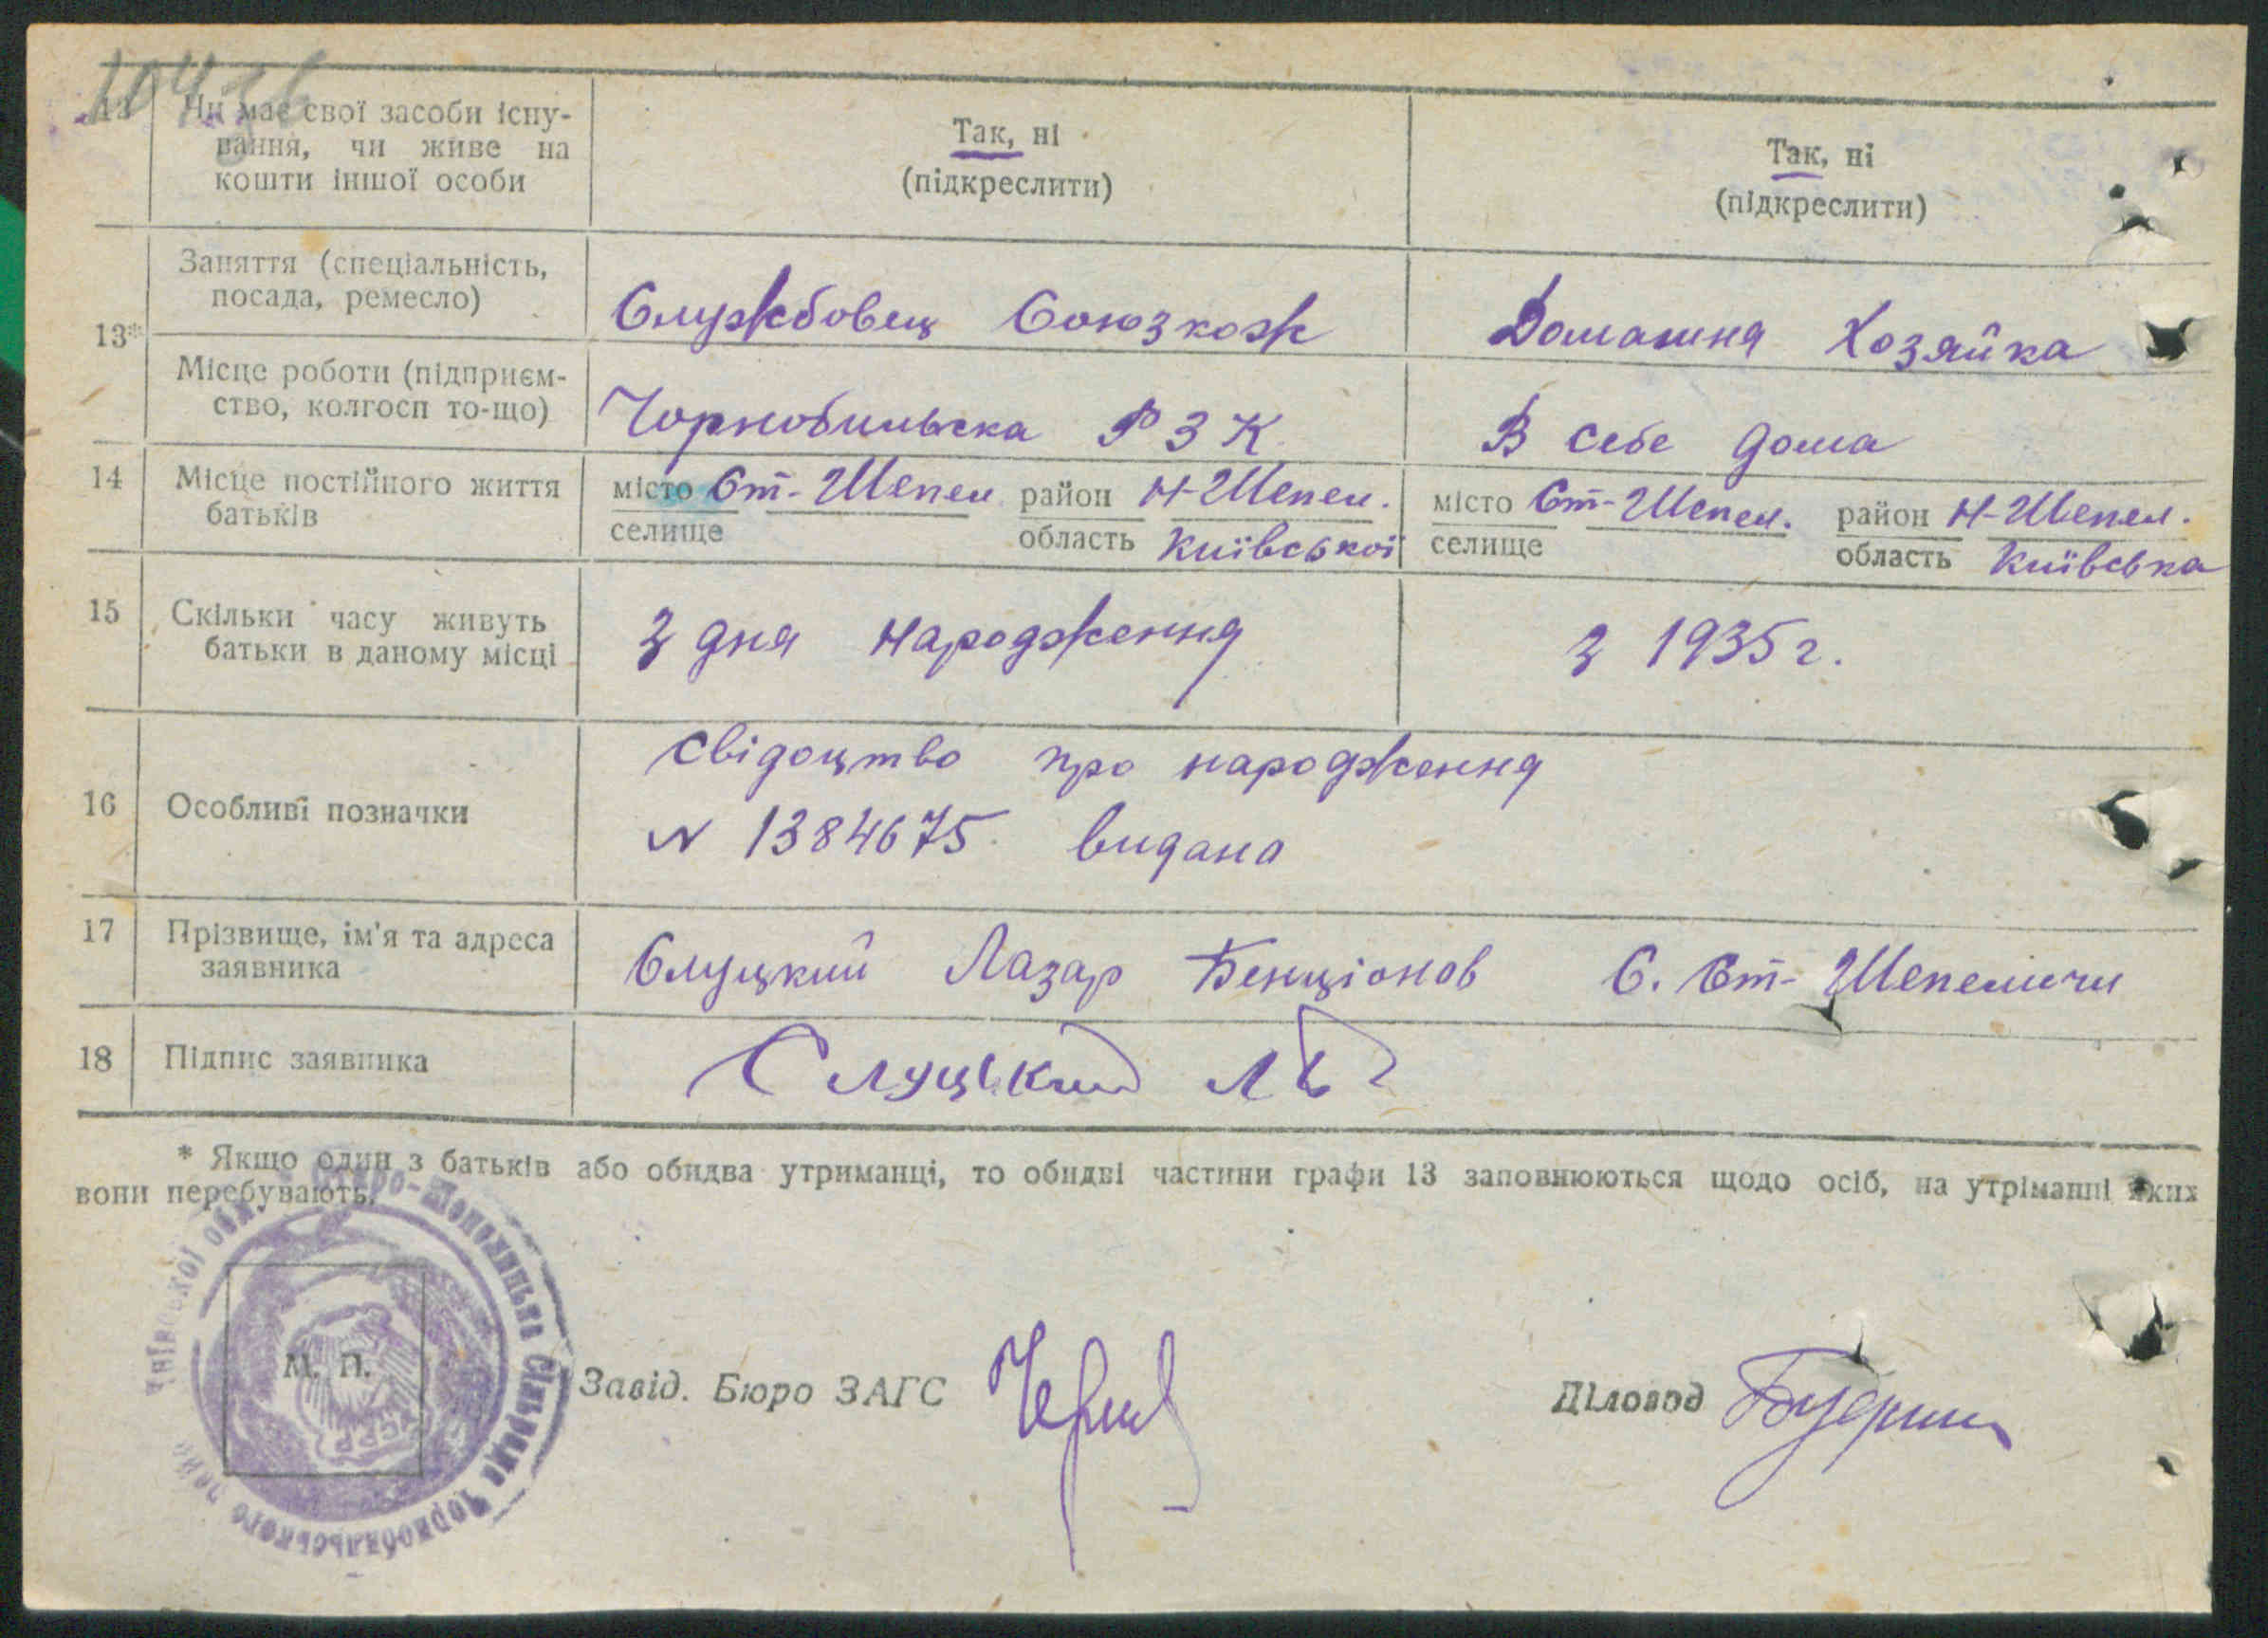 12 Чи має свої засоби існу-
вання, чи живе на
кошти іншої особи
Так, ні
(підкреслити)
Так, ні
(підкреслити)
13*
Заняття (спеціальність,
посада, ремесло)
Службовец Союзкож
Домашня Хозяйка
Місце роботи (підприєм-
ство, колгосп то-що)
Чорнобильска РЗК
В себе дома
14 Місце постійного життя
батьків
місто Ст-Шепел район Н-Шепел.
селище область Київської
місто Ст-Шепел. район Н-Шепел.
селище область Київська
15 Скільки часу живуть
батьки в даному місці
З дня народження
З 1935 г.
16 Особливі позначки
Свідоцтво про народження
N 1384675 видана
17 Прізвище, ім'я та адреса
заявника
Слуцкий Лазар Бенціонов С. Ст-Шепеличи
18 Підпис заявника
Слуцький ЛБ
* Якщо один з батьків або обидва утриманці, то обидві частини графи 13 заповнюються щодо осіб, на утріманні яких
вони перебувають.
М. П.
Завід. Бюро ЗАГС
Діловод